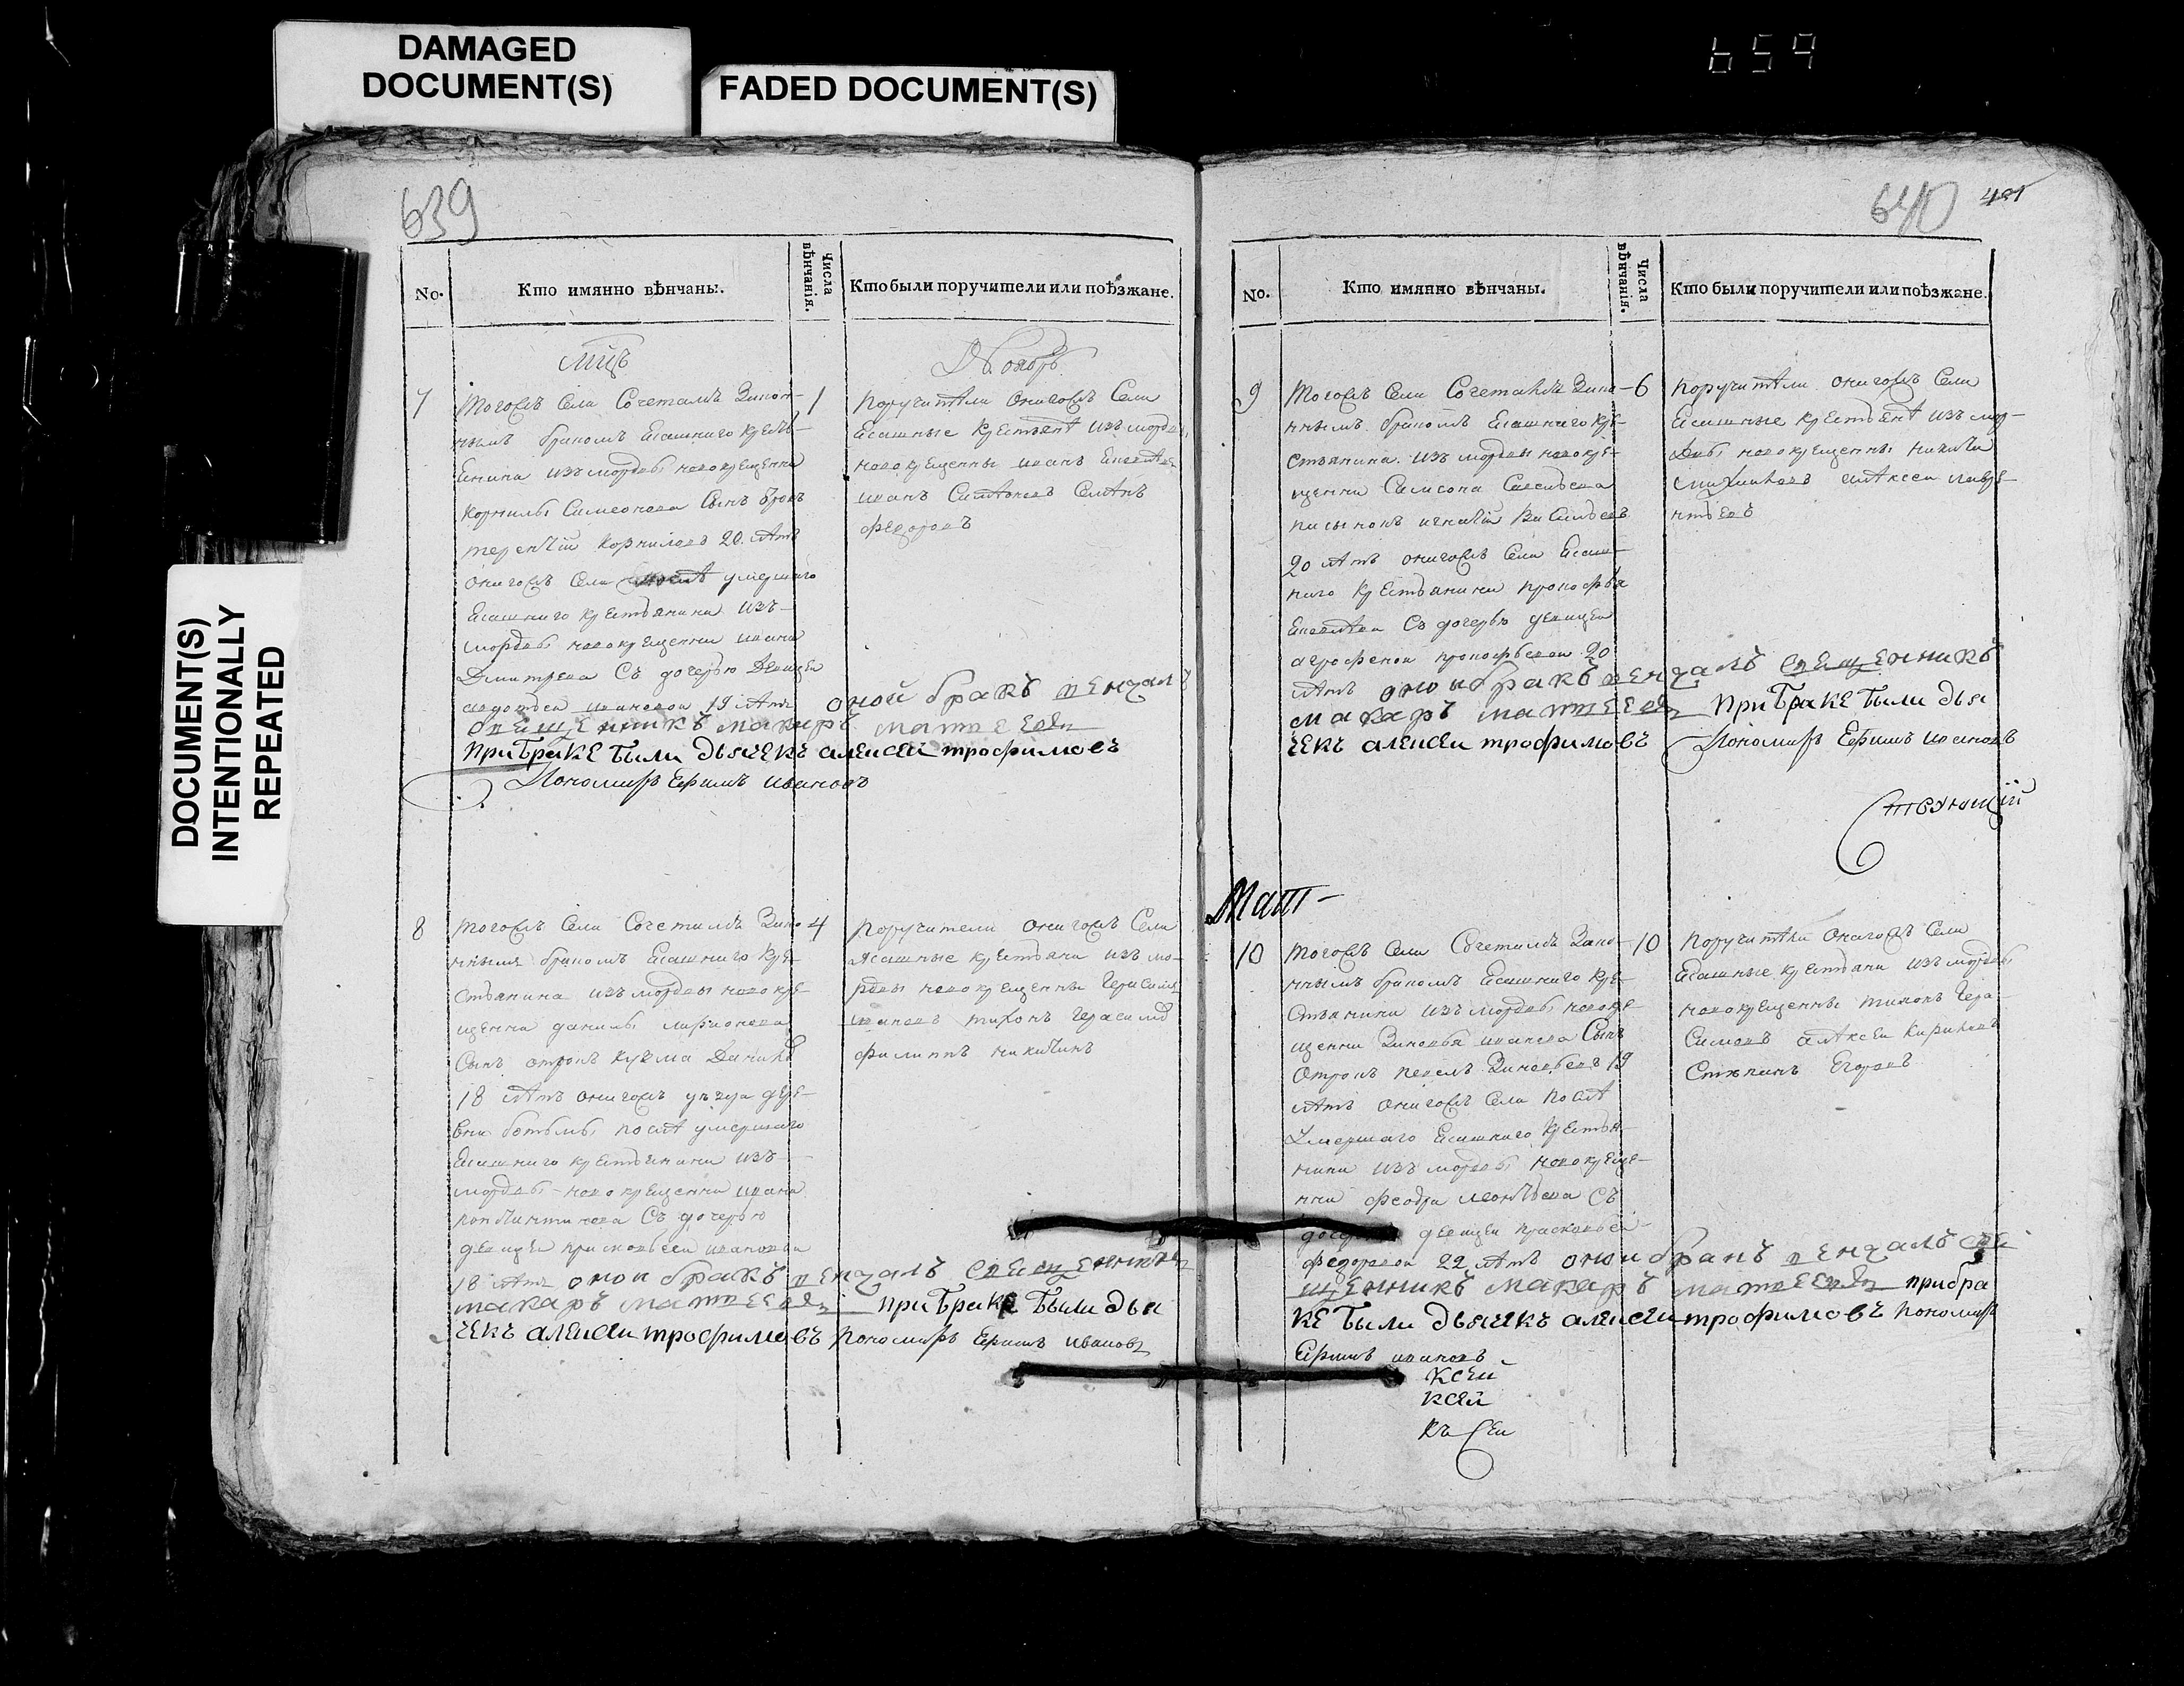 DAMAGED
DOCUMENT(S)
FADED DOCUMENT(S)
659
DOCUMENT(S)
INTENTIONALLY
REPEATED
639
No.
Кто имянно вѣнчаны.
Числа вѣнчанія.
Кто были поручители или поѣзжане.
Мцъ
Ноябрь
7
тогожъ села Сочетанъ Закон-
нымъ бракомъ Ясашнаго кресть-
янина изъ мордвы новокрещенна
Корнилы Симеонова Сынъ отрокъ
терентій корниловъ 20 лѣтъ
онагожъ села умершаго
Ясашнаго крестьянина изъ
мордвы новокрещенна ивана
Дмитрева Съ дочерью Девицей
авдотьей ивановой 19 лѣтъ
оной бракъ венчалъ
священникъ макаръ матвеевъ
при браке были дьячекъ алексеи трофимовъ
Пономарь Ефимъ ивановъ
1
поручители онагожъ Села
Ясашные крестьяне изъ мордвы
новокрещенны иванъ
иванъ Семенъ
федоровъ
8
тогожъ села Сочетанъ Зако-
ннымъ бракомъ Ясашнаго кре-
стьянина изъ мордвы новокре-
щенна данилы ларионова
Сынъ отрокъ кузма Данилов
18 лѣтъ онагожъ уезда дере-
вни ботьмы после умершаго
Ясашнаго крестьянина изъ
мордвы новокрещенна ивана
константинова Съ дочерью
девицей прасковьей ивановой
18 лѣтъ оной бракъ венчалъ священникъ
макаръ матвеевъ при браке были дья
чекъ алексеи трофимовъ Пономарь Ефимъ ивановъ
4
поручители онагожъ Села
Ясашные крестьяна изъ мо-
рдвы новокрещенны Герасимъ
ивановъ тихонъ Герасимо
филиппъ никитинъ
640
401
No.
Кто имянно вѣнчаны.
Числа вѣнчанія.
Кто были поручители или поѣзжане.
9
тогожъ Села Сочетанъ Зако-
ннымъ бракомъ Ясашнаго кре-
стьянина изъ мордвы новокре-
щенна Самсона Савельева
пасынокъ игнатій Васильевъ
20 лѣтъ онагожъ Села Ясаш-
наго крестьянина прокофья
Съ дочерью девицей
агрофеной прокофьевой 20
лѣтъ оной бракъ венчалъ священникъ
макаръ матвеевъ при браке были дья
чекъ алексеи трофимовъ Пономарь Ефимъ ивановъ
6
поручители онагожъ Села
Ясашные крестьяне изъ мор-
двы новокрещенны
Мат
10
тогожъ Села Сочетанъ Зако-
ннымъ бракомъ Ясашнаго кре-
стьянина изъ мордвы новокре-
щенна Зиновья иванова Сынъ
Отрокъ павелъ Зиновьевъ 19
лѣтъ онагожъ Села после
Умершаго Ясашнаго крестья-
нина изъ мордвы новокреще-
нна феодра леонтьева Съ
девицей прасковьей
федоровой 22 лѣтъ оной бракъ венчалъ свя
щенникъ макаръ матвеевъ при бра
ке были дьячекъ алексеи трофимовъ Пономарь
Ефимъ ивановъ
ксей
ксей
къ сеи
10
поручители онагожъ Села
Ясашные крестьяна изъ мордвы
новокрещенны тихонъ Гера-
симовъ алексеи
Степанъ Егоровъ